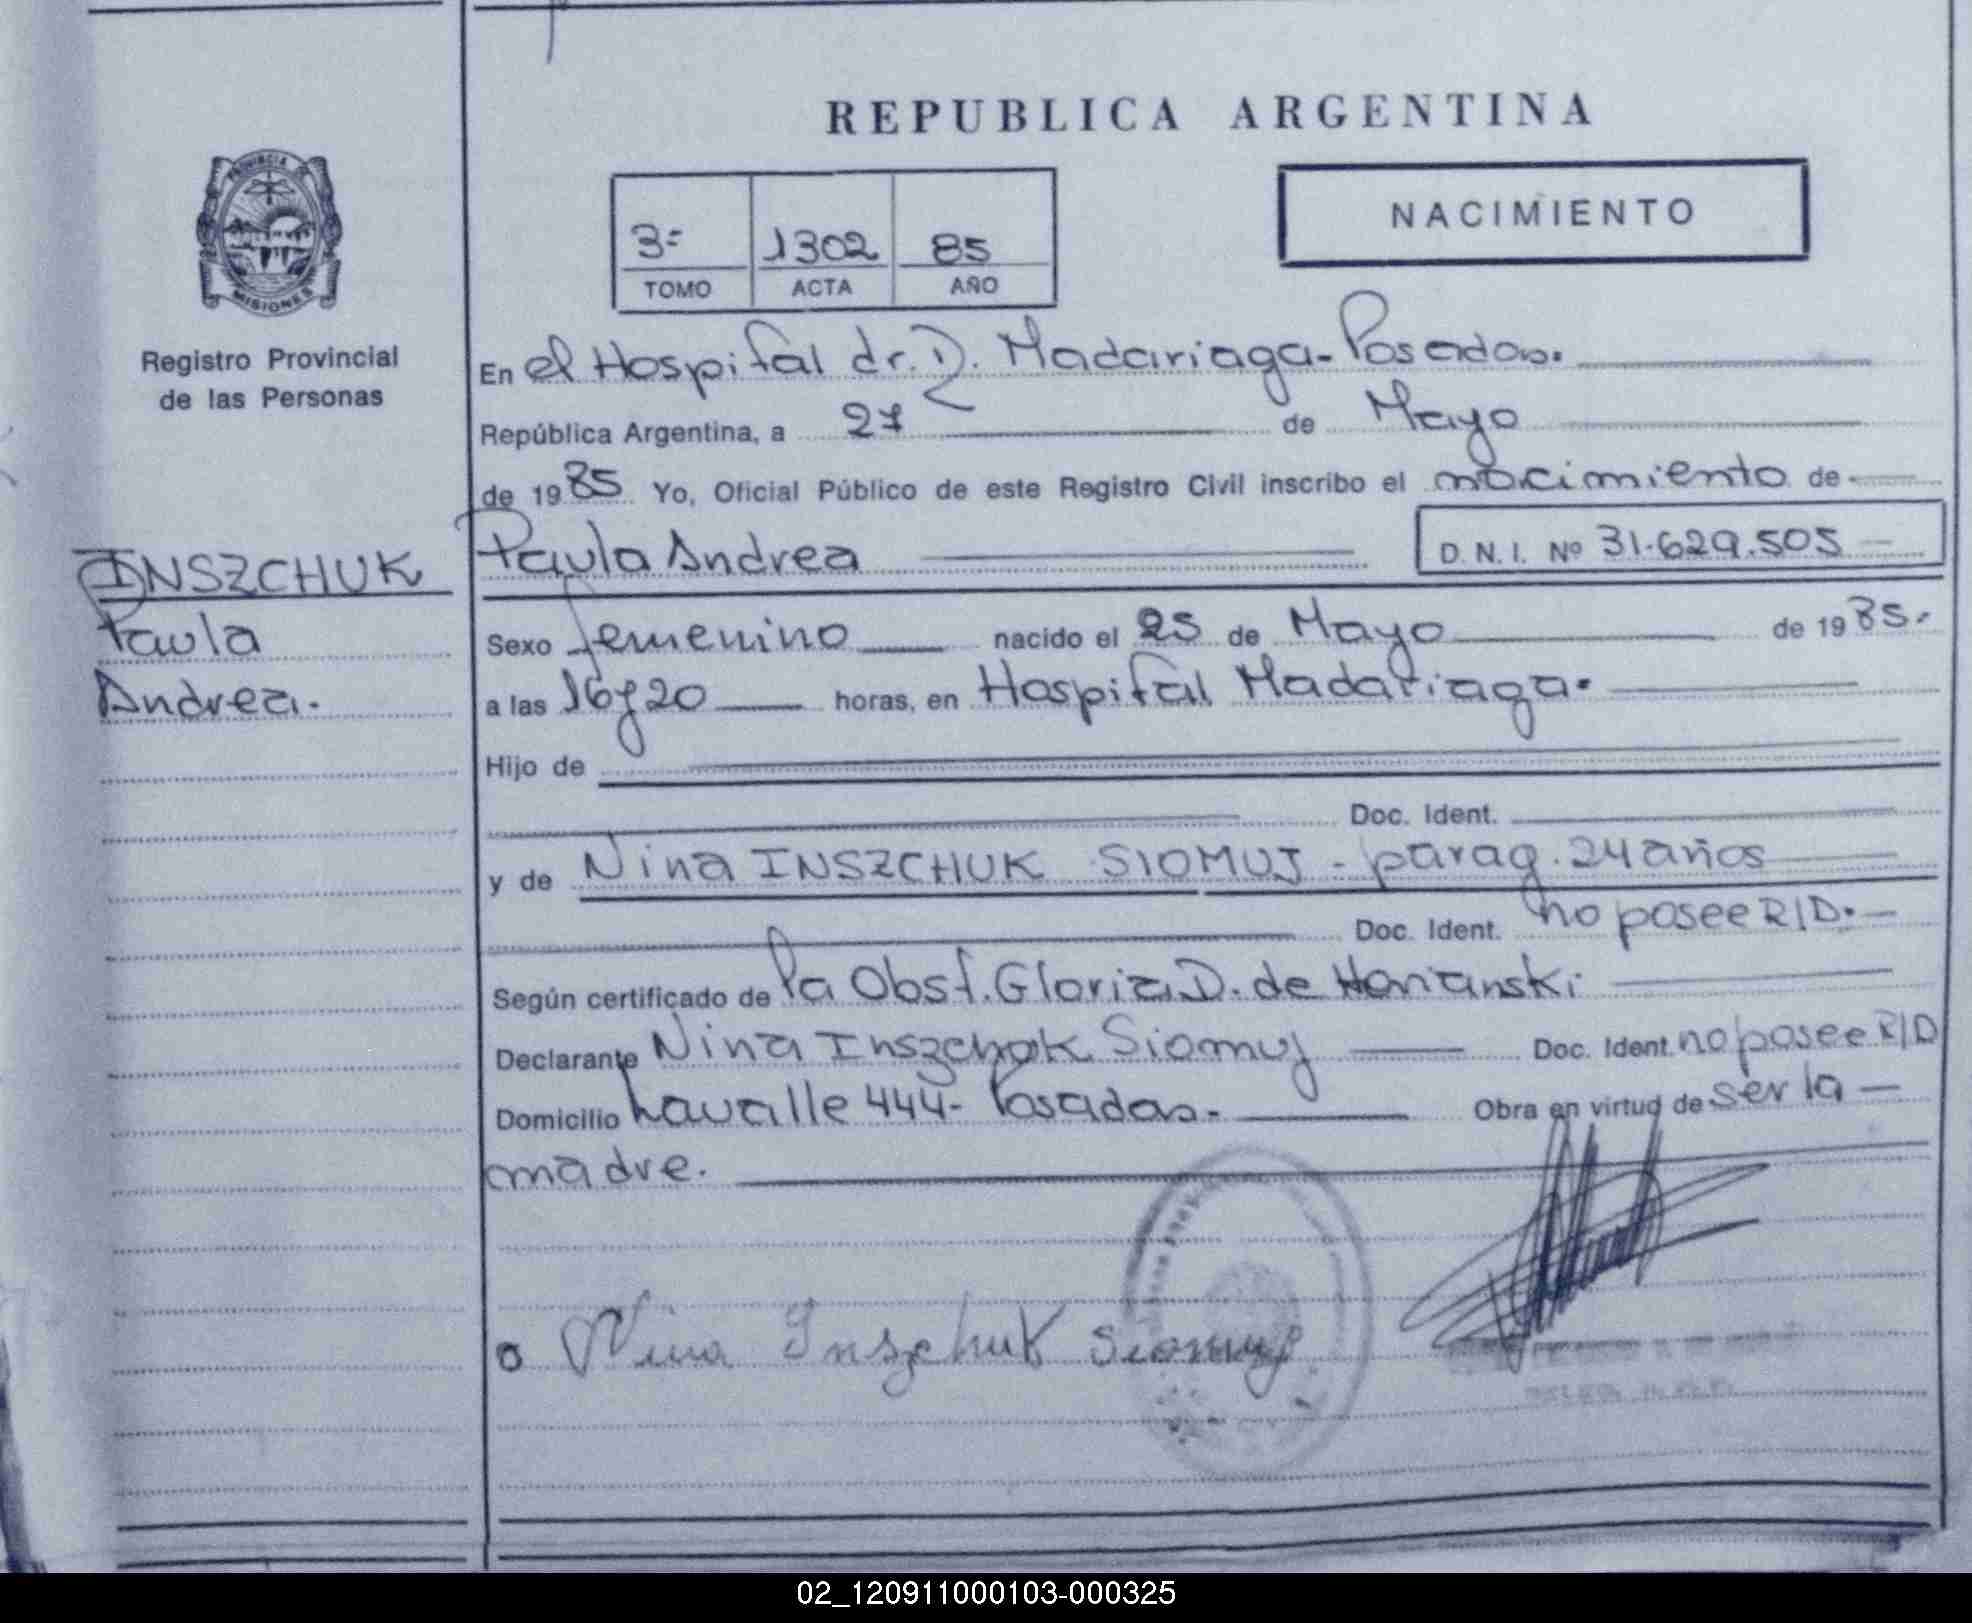 REPUBLICA ARGENTINA
PROVINCIA DE
MISIONES
Registro Provincial
de las Personas
3º 1302 85
TOMO ACTA AÑO
NACIMIENTO
En el Hospital dr. D. Madariaga - Posadas.
República Argentina, a 27 de Mayo
de 1985 Yo, Oficial Público de este Registro Civil inscribo el nacimiento de
INSZCHUK
Paula
Andrea.
Paula Andrea D.N.I. Nº 31.629.505
Sexo femenino nacido el 25 de Mayo de 1985.
a las 16 y 20 horas, en Hospital Madariaga.
Hijo de
Doc. Ident.
y de Nina INSZCHUK SIOMUJ - parag. 24 años
Doc. Ident. no posee R/D.
Según certificado de la Obst. Gloria D. de
Declarante Nina Inszchuk Siomuj Doc. Ident. no posee R/D
Domicilio Lavalle 444 - Posadas. Obra en virtud de ser la
madre.
Nina Inszchuk Siomuj
02_120911000103-000325